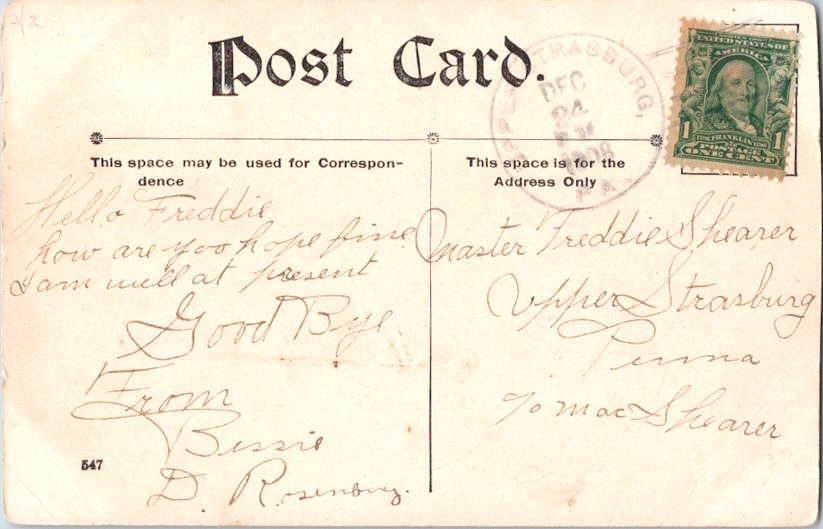 22
Post Card.
UPPER STRASBURG, PA.
DEC
24
PM
1908
SERIES 1902
UNITED STATES OF
AMERICA
1 1
1706 FRANKLIN 1790
POSTAGE
ONE CENT
This space may be used for Correspon-
dence
This space is for the
Address Only
Hello Freddie
how are you hope fine
I am well at present
Good Bye.
From
Bessie
D. Rosenberg.
547
Master Freddie Shearer
Upper Strasburg
Penna
% Mac Shearer